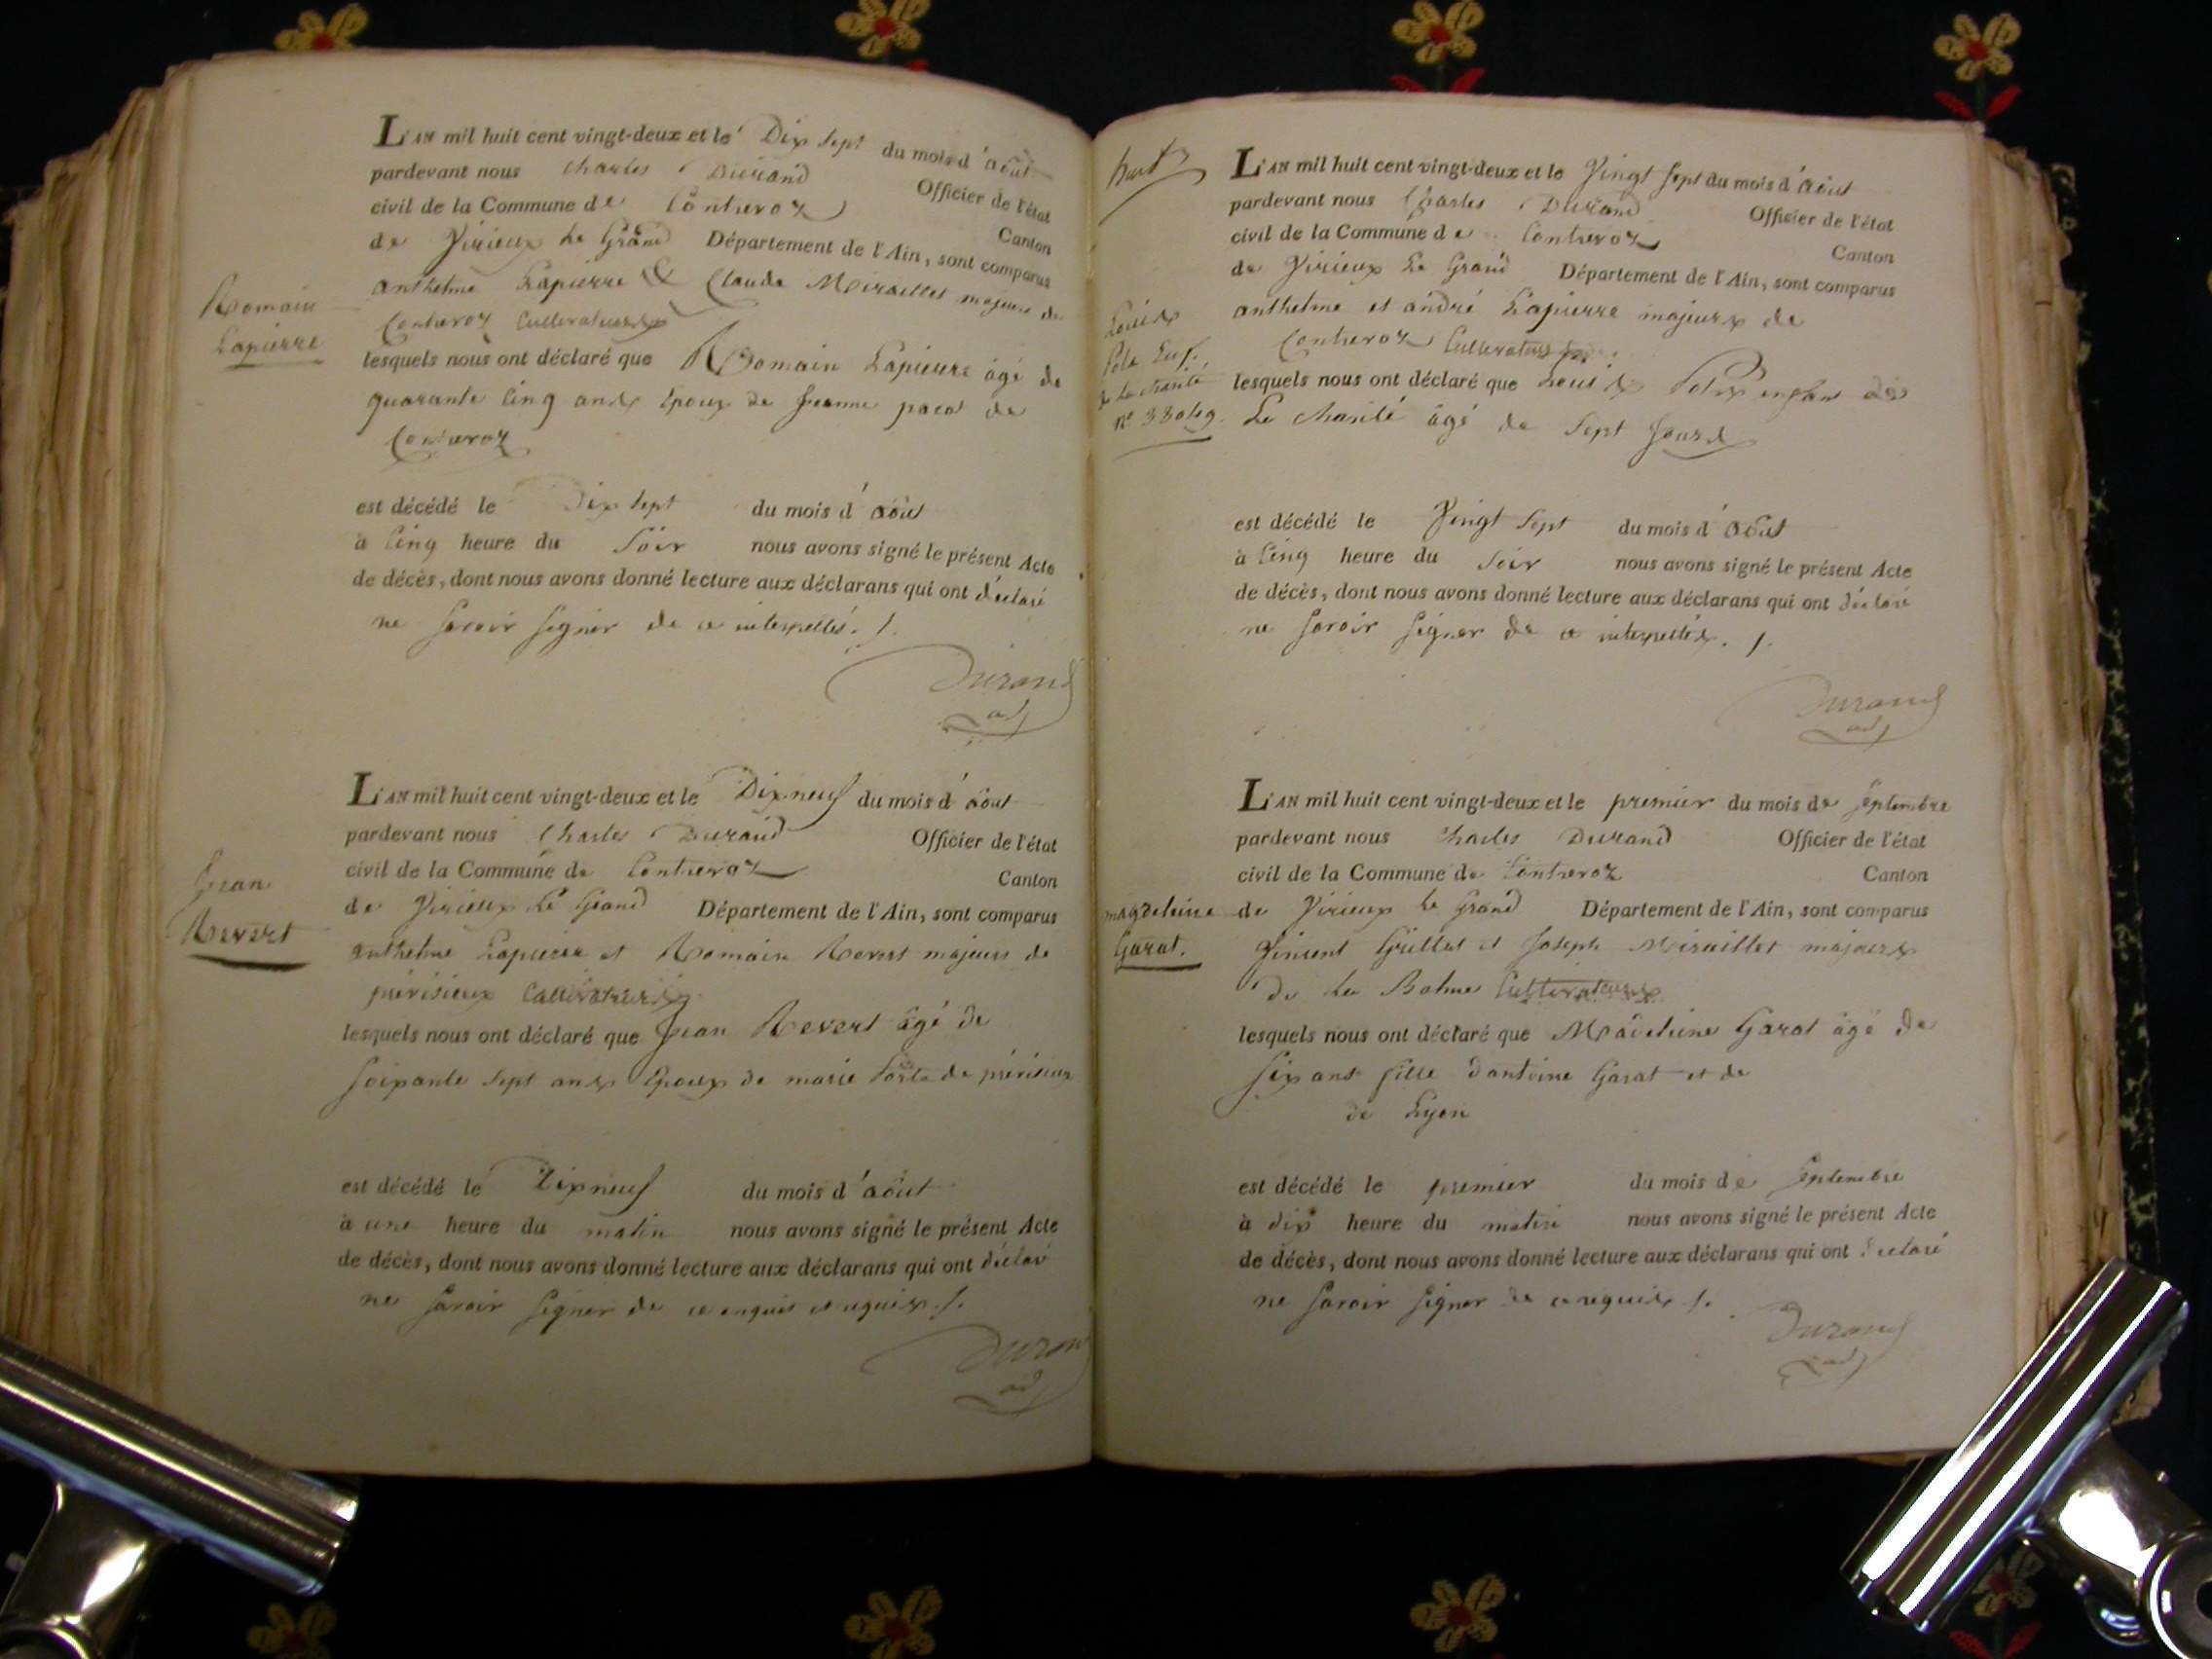 L'AN mil huit cent vingt-deux et le Dix Sept du mois d'aout
pardevant nous Charles Durand Officier de l'état
civil de la Commune de Contrevoz Canton
de Virieux Le Grand Département de l'Ain, sont comparus
anthelme Lapierre & Claude Miraillet majeurs de
Contrevoz Cultivateurs
Romain
Lapierre
lesquels nous ont déclaré que Romain Lapierre agé de
quarante Cinq ans Epoux de Jeanne de
Contrevoz
est décédé le Dix Sept du mois d'aout
à Cinq heure du Soir nous avons signé le présent Acte
de décès, dont nous avons donné lecture aux déclarans qui ont déclaré
ne Savoir Signer de ce interpellés. /.
Durand
adj
L'AN mil huit cent vingt-deux et le Dixneuf du mois d'aout
pardevant nous Charles Durand Officier de l'état
civil de la Commune de Contrevoz Canton
de Virieux Le Grand Département de l'Ain, sont comparus
anthelme Lapierre et Romain Revert majeurs de
Cultivateurs
Jean
Revert
lesquels nous ont déclaré que Jean Revert agé de
Soixante Sept ans Epoux de marie de
est décédé le Dixneuf du mois d'aout
à une heure du matin nous avons signé le présent Acte
de décès, dont nous avons donné lecture aux déclarans qui ont déclaré
ne Savoir Signer de ce enquis et requis /.
Durand
adj
L'AN mil huit cent vingt-deux et le Vingt Sept du mois d'aout
pardevant nous Charles Durand Officier de l'état
civil de la Commune de Contrevoz Canton
de Virieux Le Grand Département de l'Ain, sont comparus
anthelme et andré Lapierre majeurs de
Contrevoz Cultivateurs
Louis
de La charité
lesquels nous ont déclaré que Louis enfant de
La Charité âgé de Sept Jours
est décédé le Vingt Sept du mois d'aout
à Cinq heure du Soir nous avons signé le présent Acte
de décès, dont nous avons donné lecture aux déclarans qui ont déclaré
ne Savoir Signer de ce interpellés. /.
Durand
adj
L'AN mil huit cent vingt-deux et le premier du mois de Septembre
pardevant nous Charles Durand Officier de l'état
civil de la Commune de Contrevoz Canton
de Virieux le Grand Département de l'Ain, sont comparus
Vincent Grillet et Joseph Miraillet majeurs
de La Balme Cultivateurs
magdeleine
Garat.
lesquels nous ont déclaré que Madeleine Garat agé de
Six ans fille d'antoine Garat et de
de Lyon
est décédé le premier du mois de Septembre
à dix heure du matin nous avons signé le présent Acte
de décès, dont nous avons donné lecture aux déclarans qui ont déclaré
ne Savoir Signer de ce requis /.
Durand
adj